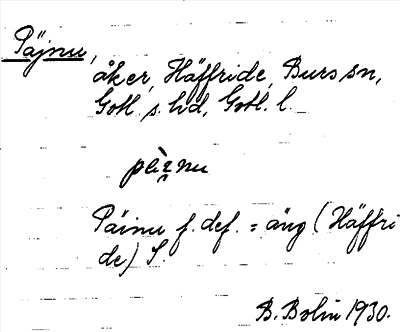 Päjnu,
åker, Häffride, Burs sn,
Gotl. s. hd, Gotl. l.
pèi̯nu
Päinu f. def. = äng (Häffri
de) S.
B. Bolin 1930.